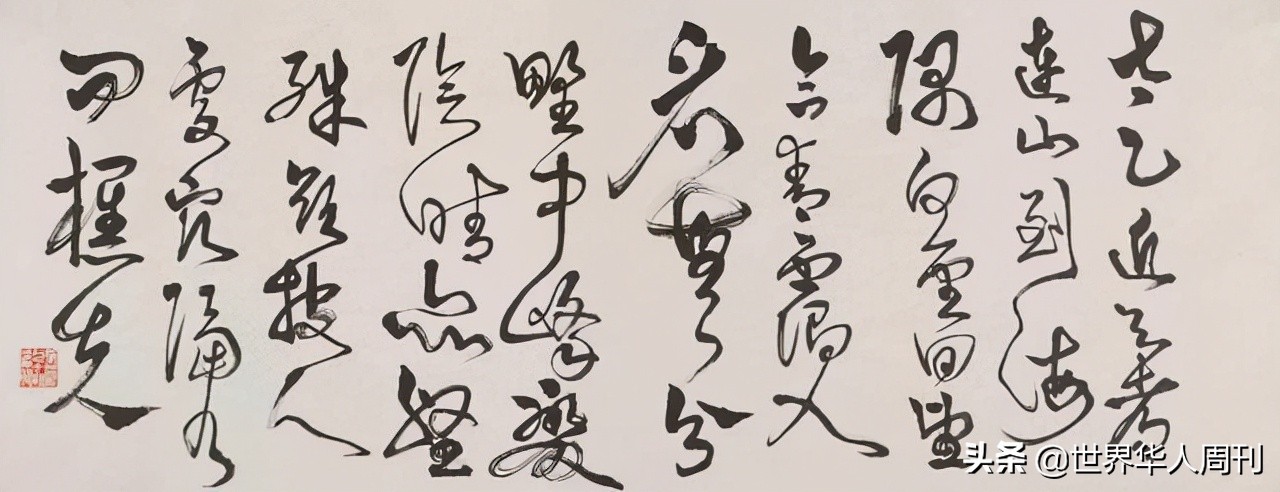 太乙近天都
連山到海
隅白雲回望
合青靄入
看無分
野中峰變
陰晴衆壑
殊欲投人
處宿隔水
問樵夫
头条 @世界华人周刊